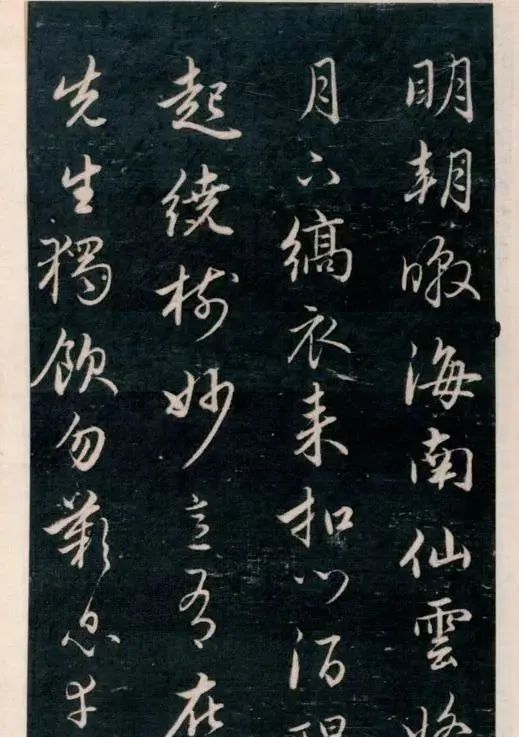 明朝暾海南仙雲
月下縞衣来扣门酒醒
起繞樹妙意有在
先生獨飲勿歎息幸